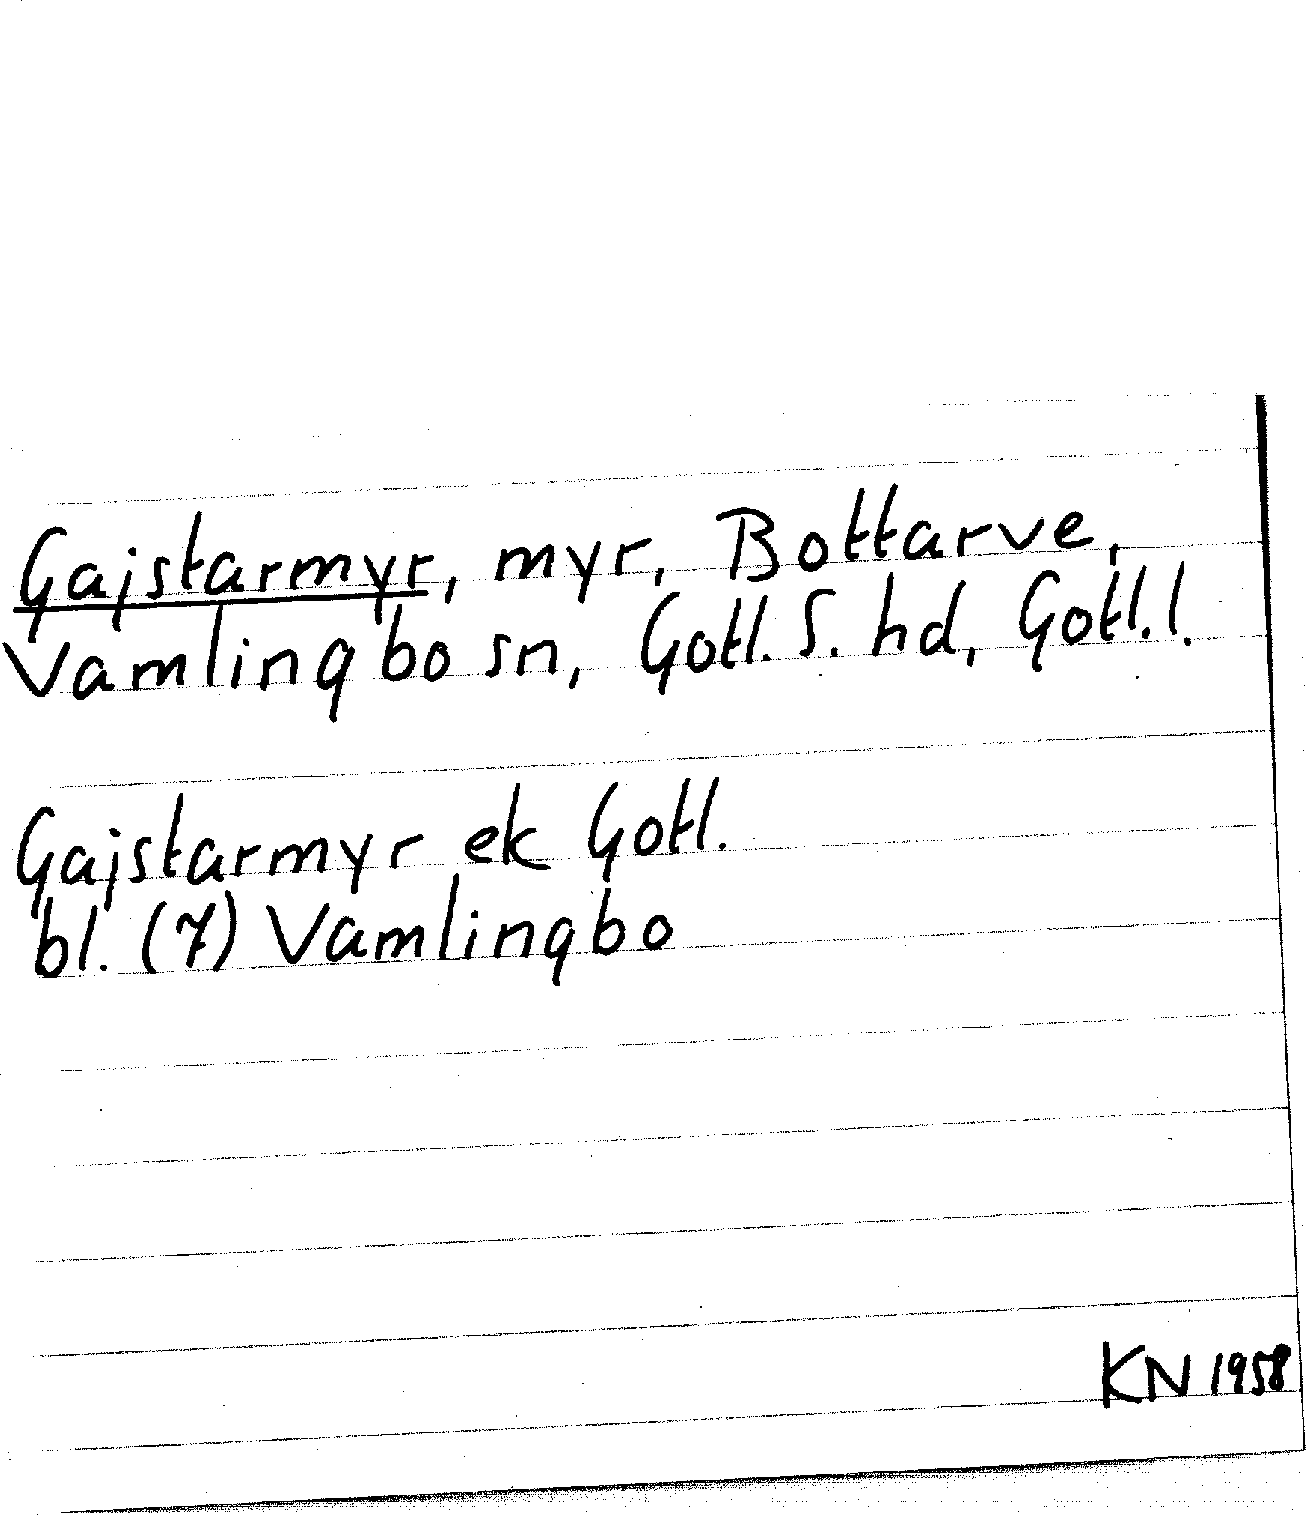 Gajstarmyr, myr, Bottarve,
Vamlingbo sn, Gotl. S. hd, Gotl. l.
Gajstarmyr ek Gotl.
bl. (7) Vamlingbo
KN 1958